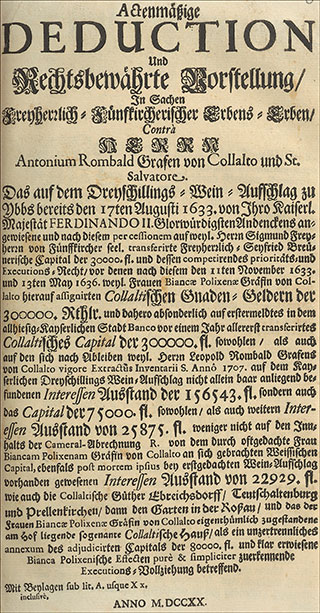 Actenmäßige
DEDUCTION
Und
Rechtsbewährte Vorstellung/
In Sachen
Freyherrlich-Fünfkircherischer Erbens-Erben/
Contrà
HERRN
Antonium Rombald Grafen von Collalto und St.
Salvatore.
Das auf dem Dreyschillings-Wein-Aufschlag zu
Ybbs bereits den 17ten Augusti 1633. von Ihro Kaiserl.
Majestät FERDINANDO II. Glorwürdigsten Andenckens an-
gewiesene und nach diesem per cessionem auf weyl. Herrn Sigmund Frey-
herrn von Fünfkircher seel. transferirte Freyherrlich-Seyfried Breü-
nerische Capital der 30000. fl. und dessen competirendes prioritäts- und
Executions-Recht/ vor denen nach diesem den 11ten November 1633.
und 13ten May 1636. weyl. Frauen Biancæ Polixenæ Gräfin von Col-
lalto hierauf assignirten Collaltischen Gnaden-Geldern der
300000. Rthlr. und dahero absonderlich auf erstermeldtes in dem
allhiesig-Kayserlichen Stadt Banco vor einem Jahr allererst transferirtes
Collaltisches Capital der 300000. fl. sowohlen/ als auch
auf den sich nach Ableiben weyl. Herrn Leopold Rombald Grafens
von Collalto vigore Extractûs Inventarii S. Annô 1707. auf dem Kay-
serlichen Dreyschillings Wein-Aufschlag nicht allein baar anliegend be-
fundenen Interessen Ausstand der 156543. fl. sondern auch
das Capital der 75000. fl. sowohlen/ als auch weitern Inter-
essen Ausstand von 25875. fl. weniger nicht auf den Inn-
halts der Cameral-Abrechnung R. von dem durch oftgedachte Frau
Biancam Polixenam Gräfin von Collalto an sich gebrachten Weissischen
Capital, ebenfals post mortem ipsius bey erstgedachten Wein-Aufschlag
vorhanden gewesenen Interessen Ausstand von 22929. fl.
wie auch die Collaltische Güther Ebreichsdorff/ Teutschaltenburg
und Prellenkirchen/ dann den Garten in der Roßau/ und das der
Frauen Biancæ Polixenæ Gräfin von Collalto eigenthümlich zugestandene
am Hof liegende sogenante Collaltische Hauß/ als ein unzertrennliches
annexum des adjudicirten Capitals der 80000. fl. und klar erwiesene
Bianca Polixenische Effecten purè & simpliciter zuerkennende
Executions-Vollziehung betreffend.
Mit Beylagen sub lit. A. usque X x,
inclusivè,
ANNO M.DCCXX.